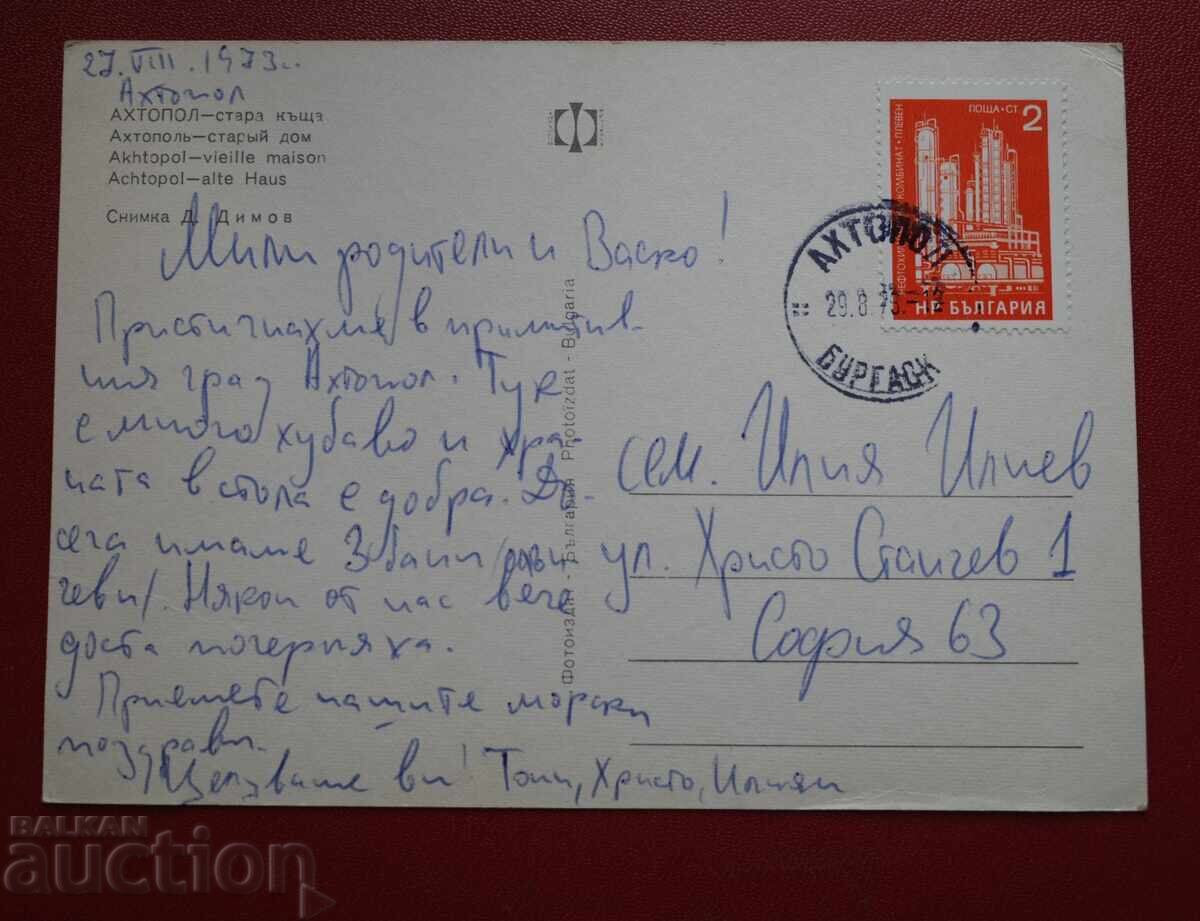 27.VIII.1973г.
Ахтопол
АХТОПОЛ—стара къща
Ахтополь—старый дом
Akhtopol—vieille maison
Achtopol—alte Haus
Снимка Д. Димов
Мили родители и Васко!
Пристигнахме в примитив-
ния град Ахтопол. Тук
е много хубаво и хра-
ната в стола е добра. До-
сега имаме 3 бани
Някои от нас вече
доста почерняха.
Приемете нашите морски
поздрави.
Целуваме ви! Тони, Христо, Илиян
Фотоиздат - България Photoizdat - Bulgaria
ПОЩА·СТ. 2
КОМБИНАТ·ПЛЕВЕН
НР БЪЛГАРИЯ
АХТОПОЛ
29.8.73.-12
БУРГАСК
сем. Илия Илиев
ул. Христо Станчев 1
София 63
BALKAN
auction